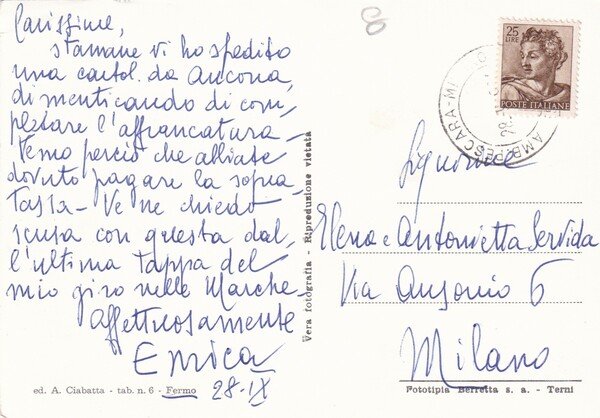 Carissime,
stamane vi ho spedito
una cartol. da Ancona,
dimenticando di com,
pletare l'affrancatura -
Temo perciò che abbiate
dovuto pagare la sopra,
tassa - Ve ne chiedo
scusa con questa dal,
l'ultima tappa del
mio giro nelle Marche
Affettuosamente
Enrica
28-IX
ed. A. Ciabatta - tab. n. 6 - Fermo
Vera fotografia - Riproduzione vietata
25
LIRE
POSTE ITALIANE
AMB. PESCARA-MI
Signorine
Elena e Antonietta Servida
Via Ausonio 6
Milano
Fototipia Berretta s. a. - Terni